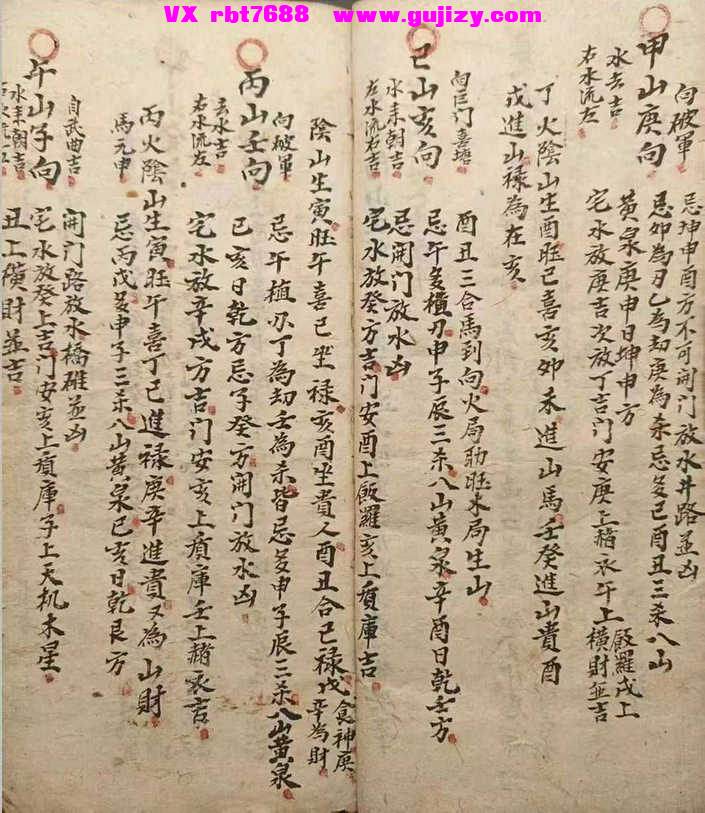 VX rbt7688 www.gujizy.com
甲山庚向
向破軍
水去吉
右水流左
忌坤申酉方不可開门放水井路並凶
忌卯為刃乙為劫庚為杀忌多巳酉丑三杀八山
黄泉庚申日坤申方
宅水放庚吉次放丁吉门安庚上
午上橫財並吉
飯羅戌上
丁火陰山生酉旺巳喜亥卯未進山馬壬癸進山貴酉
戌進山禄為在亥
巳山亥向
向巨门喜塘
水来朝吉
左水流右吉
酉丑三合馬到向火局助旺木局生山
忌午多橫刃申子辰三杀八山黄泉辛酉日乾壬方
忌開门放水凶
宅水放癸方吉门安酉上飯羅亥上頂庫吉
陰山生寅旺午喜巳坐禄亥酉坐貴人酉丑合巳禄戊
食神庚
辛為財
丙山壬向
向破軍
去水吉
右水流左
忌午植刃丁為劫壬為杀皆忌多申子辰三杀八山黄泉
巳亥日乾方忌子癸方開门放水凶
宅水放辛戌方吉门安亥上頂庫壬上
吉
丙火陰山生寅旺午喜丁巳進禄庚辛進貴又為山財
馬元申
忌丙戊多申子三杀八山黄泉巳亥日乾艮方
午山子向
向武曲吉
水来朝吉
開门路放水橋碓並凶
宅水放癸上吉门安亥上頂庫子上天机木星
丑上橫財並吉